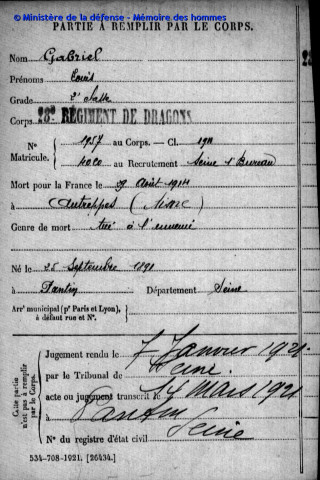 © Ministère de la défense - Mémoire des hommes
PARTIE À REMPLIR PAR LE CORPS.
Nom Gabriel
Prénoms Louis
Grade 2e
Corps 23e RÉGIMENT DE DRAGONS
N° Matricule. 1957 au Corps. — Cl. 1911
4020 au Recrutement Seine 1er Bureau
Mort pour la France le 29 Août 1914
à Autreppes (
Genre de mort tué à l'ennemi
Né le 25 Septembre 1891
à Pantin Département Seine
Arrt municipal (pr Paris et Lyon),
à défaut rue et N°.
Cette partie
n'est pas à remplir
par le Corps.
Jugement rendu le 7 Janvier 1921
par le Tribunal de Seine.
acte ou jugement transcrit le 17 Mars 1921
à Pantin Seine
N° du registre d'état civil
534-708-1921. [26434.]